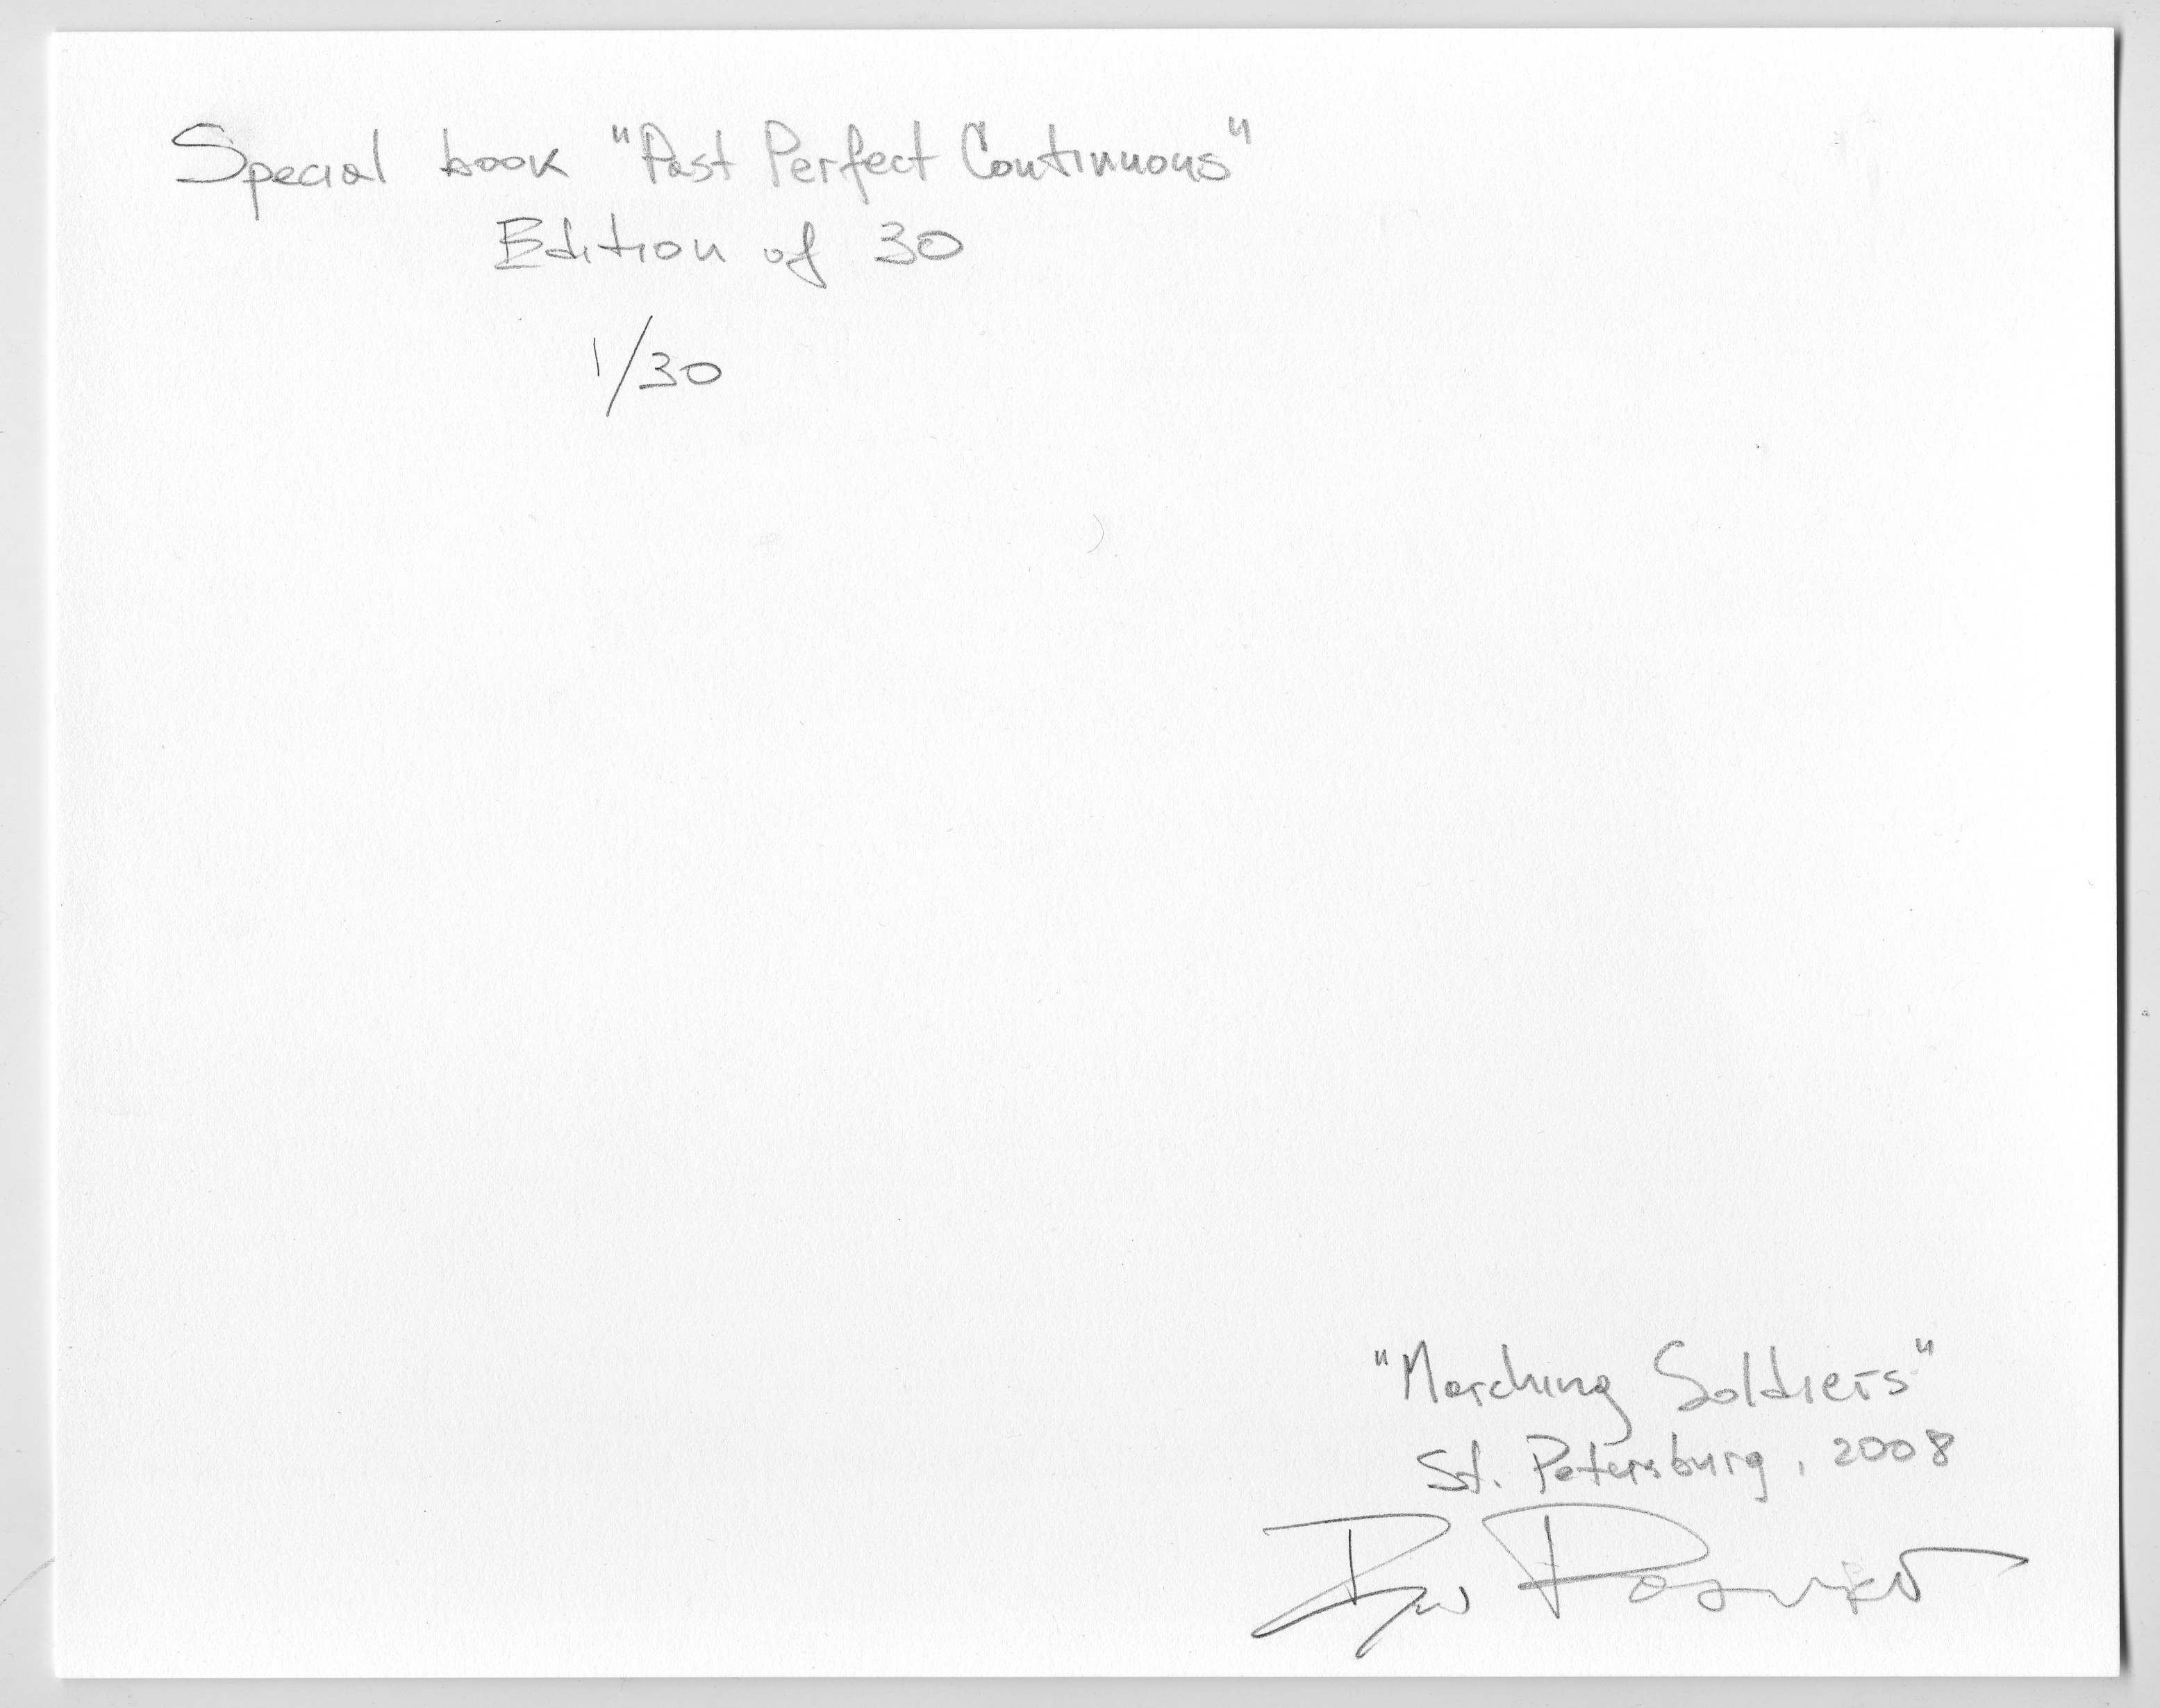 Special book "Past Perfect Continuous"
Edition of 30
1/30
"Marching Soldiers"
St. Petersburg, 2008